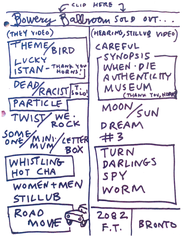 CLIP HERE
Bowery Ballroom SOLD OUT...
(THEY VIDEO)
THEME/BIRD
LUCKY
ISTAN- THANK YOU HORNS!
DEAD/RACIST T. SOLO?
PARTICLE
TWIST/WE ROCK
SOMEONE/MINIMUM/LETTER BOX
WHISTLING
HOT CHA
WOMEN+MEN
STILLUB
ROAD
MOVIE
(HEARING, STILLUB VIDEO)
CAREFUL
SYNOPSIS
WHEN·DIE
AUTHENTICITY
MUSEUM
(THANK YOU, HORNS)
MOON/SUN
DREAM
#3
TURN
DARLINGS
SPY
WORM
2082
F.T.
BRONTO